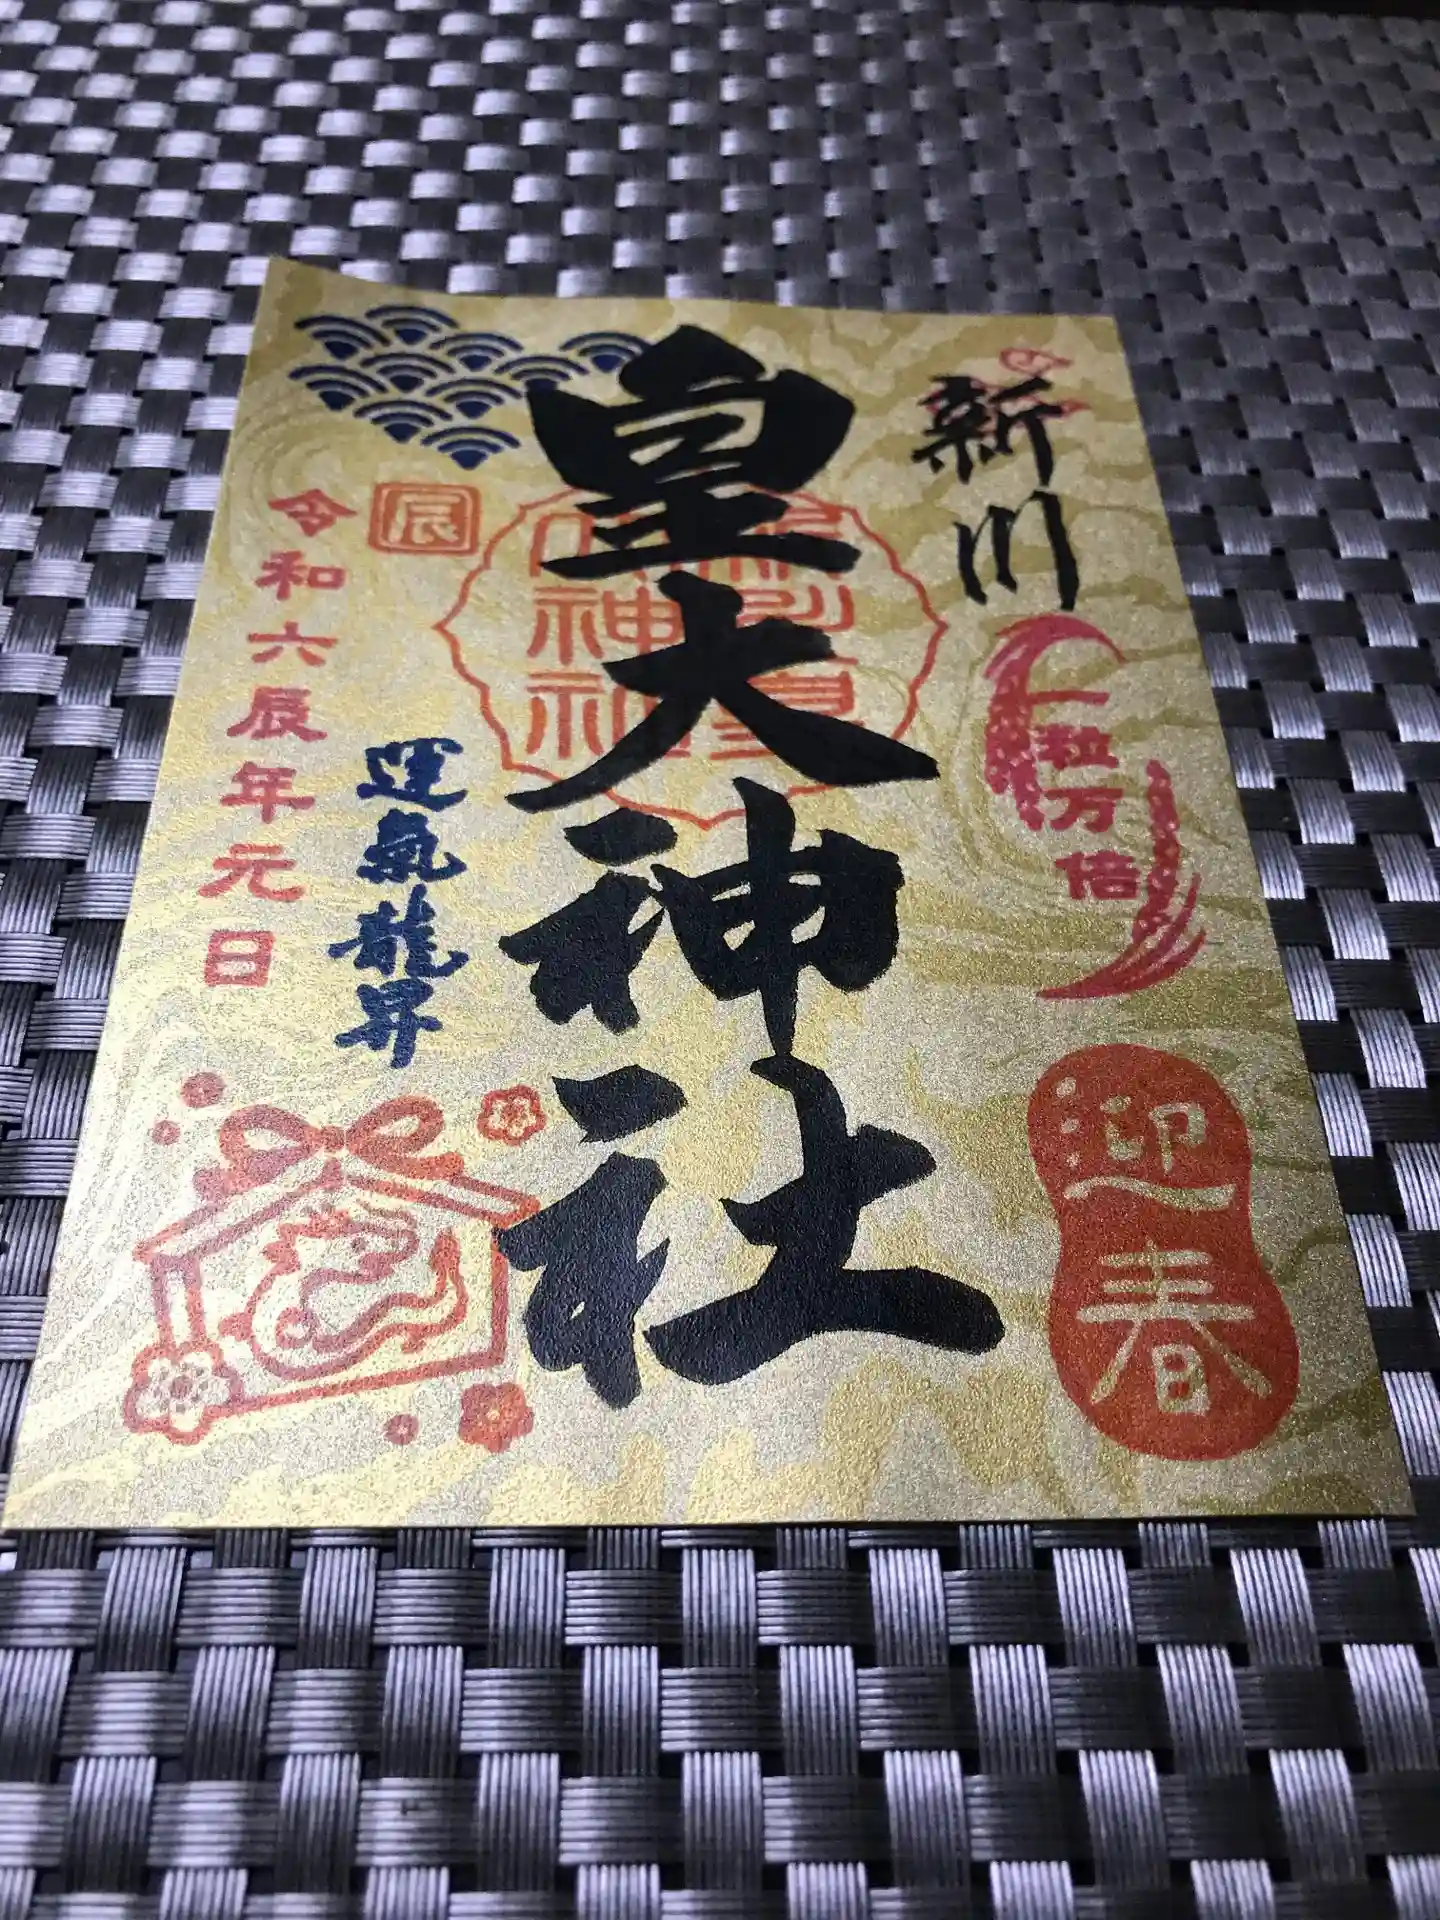 新川
一粒万倍
迎春
皇大神社
辰
運氣龍昇
令和六辰年元日